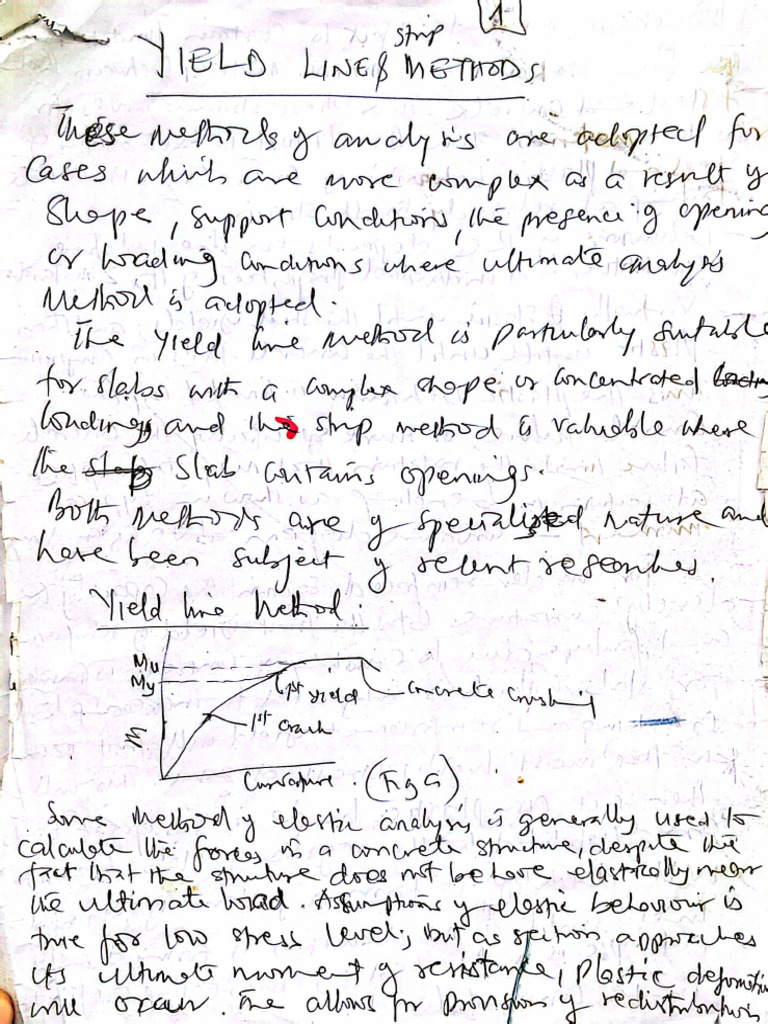 1
strip
YIELD LINE & METHODS
These methods of analysis are adopted for
cases which are more complex as a result of
shape, support conditions, the presence of opening
or loading conditions where ultimate analysis
method is adopted.
The yield line method is particularly suitable
for slabs with a complex shape or concentrated
loadings and the strip method is valuable where
the slab contains openings.
Both methods are of specialised nature and
have been subject of recent researches.
Yield line Method.
Mu
My
1st yield
concrete crushing
1st crack
M
Curvature. (Fig a)
Some method of elastic analysis is generally used to
calculate the forces in a concrete structure, despite the
fact that the structure does not behave elastically near
the ultimate load. Assumptions of elastic behaviour is
true for low stress level, but as section approaches
its ultimate moment of resistance, plastic deformation
will occur. The allows for provisions of redistributions